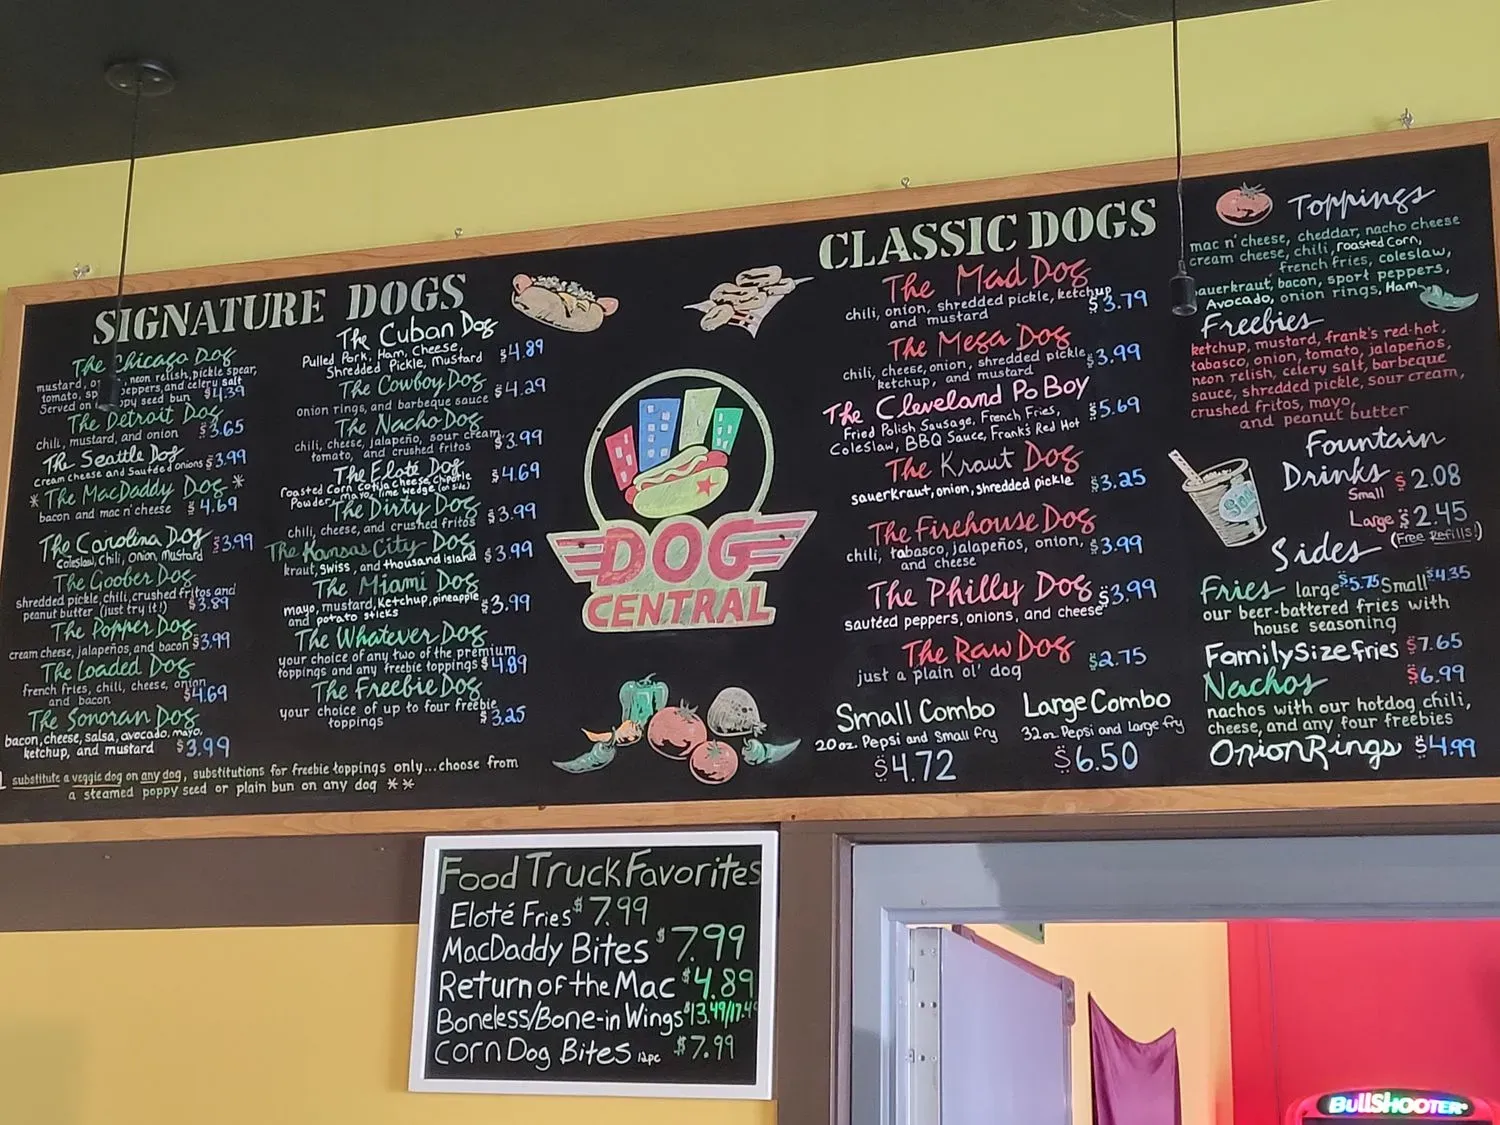 SIGNATURE DOGS
The Chicago Dog
mustard, neon relish, pickle spear,
tomato, peppers, and celery salt
Served on poppy seed bun $4.39
The Detroit Dog
chili, mustard, and onion $3.65
The Seattle Dog
cream cheese and Sautéed onions $3.99
* The MacDaddy Dog *
bacon and mac n' cheese $4.69
The Carolina Dog $3.99
Coleslaw, Chili, Onion, Mustard
The Goober Dog
shredded pickle, chili, crushed fritos and
peanut butter (just try it!) $3.89
The Popper Dog
cream cheese, jalapeños, and bacon $3.99
The Loaded Dog
french fries, chili, cheese, onion
and bacon $4.69
The Sonoran Dog
bacon, cheese, salsa, avocado, mayo,
ketchup, and mustard $3.99
The Cuban Dog
Pulled Pork, Ham, Cheese,
Shredded Pickle, Mustard $4.89
The Cowboy Dog
onion rings, and barbeque sauce $4.29
The Nacho Dog
chili, cheese, jalapeño, sour cream,
tomato, and crushed fritos $3.99
The Eloté Dog
roasted Corn, Cotija Cheese, chipotle
Powder, mayo, lime wedge (on side) $4.69
The Dirty Dog
chili, cheese, and crushed fritos $3.99
The Kansas City Dog
kraut, swiss, and thousand island $3.99
The Miami Dog
mayo, mustard, ketchup, pineapple
and potato sticks $3.99
The Whatever Dog
your choice of any two of the premium
toppings and any freebie toppings $4.89
The Freebie Dog
your choice of up to four freebie
toppings $3.25
substitute a veggie dog on any dog, substitutions for freebie toppings only...choose from
a steamed poppy seed or plain bun on any dog **
DOG
CENTRAL
CLASSIC DOGS
The Mad Dog
chili, onion, shredded pickle, ketchup
and mustard $3.79
The Mega Dog
chili, cheese, onion, shredded pickle,
ketchup, and mustard $3.99
The Cleveland Po Boy
Fried Polish Sausage, French Fries,
Coleslaw, BBQ Sauce, Frank's Red Hot $5.69
The Kraut Dog
sauerkraut, onion, shredded pickle $3.25
The Firehouse Dog
chili, tabasco, jalapeños, onion,
and cheese $3.99
The Philly Dog
sautéed peppers, onions, and cheese $3.99
The Raw Dog
just a plain ol' dog $2.75
Small Combo
20oz Pepsi and Small fry
$4.72
Large Combo
32oz Pepsi and large fry
$6.50
Toppings
mac n' cheese, cheddar, nacho cheese
cream cheese, chili, roasted corn,
french fries, coleslaw,
sauerkraut, bacon, sport peppers,
Avocado, onion rings, Ham
Freebies
ketchup, mustard, frank's red-hot,
tabasco, onion, tomato, jalapeños,
neon relish, celery salt, barbeque
sauce, shredded pickle, sour cream,
crushed fritos, mayo,
and peanut butter
Fountain
Drinks
Small $2.08
Large $2.45
(Free Refills!)
Sides
Fries large $5.75 Small $4.35
our beer-battered fries with
house seasoning
Family Size fries $7.65
Nachos $6.99
nachos with our hotdog chili,
cheese, and any four freebies
Onion Rings $4.99
Food Truck Favorites
Eloté Fries $7.99
MacDaddy Bites $7.99
Return of the Mac $4.89
Boneless/Bone-in Wings $13.49/17.49
Corn Dog Bites 12pc $7.99
BullShooter